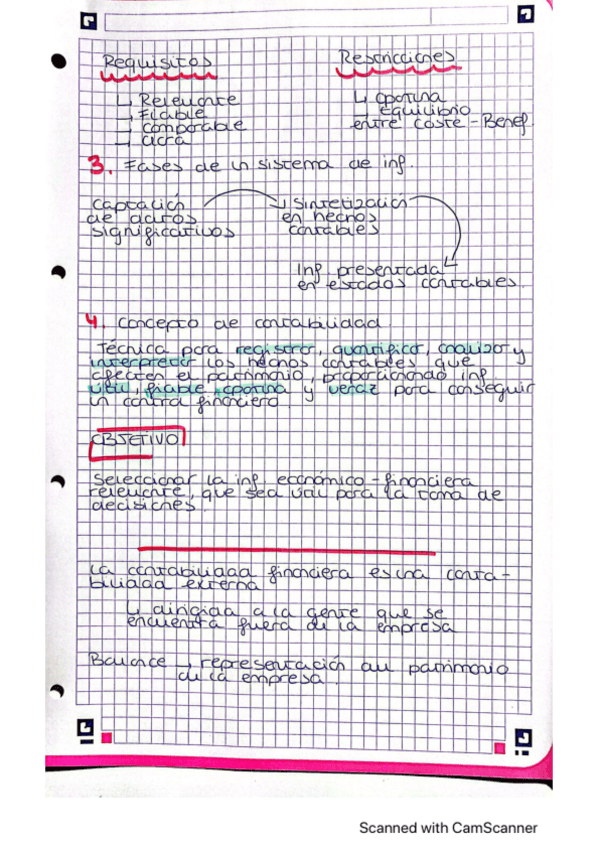 Requisitos
Restricciones
↳ Relevante
↳ Fiable
↳ comparable
↳ clara
↳ oportuna
equilibrio
entre coste - Benef.
3. Fases de un sistema de inf.
Captación
de datos
significativos
Sintetización
en hechos
contables
Inf. presentada
en estados contables.
4. Concepto de contabilidad
Técnica para registrar, cuantificar, analizar y
interpretar los hechos contables que
afecten el patrimonio, proporcionando inf.
útil, fiable, oportuna y veraz para conseguir
un control financiero.
OBJETIVO
Seleccionar la inf. económico-financiera
relevante, que sea útil para la toma de
decisiones.
La contabilidad financiera es una conta-
bilidad externa
↳ dirigida a la gente que se
encuentra fuera de la empresa
Balance → representación del patrimonio
de la empresa.
Scanned with CamScanner